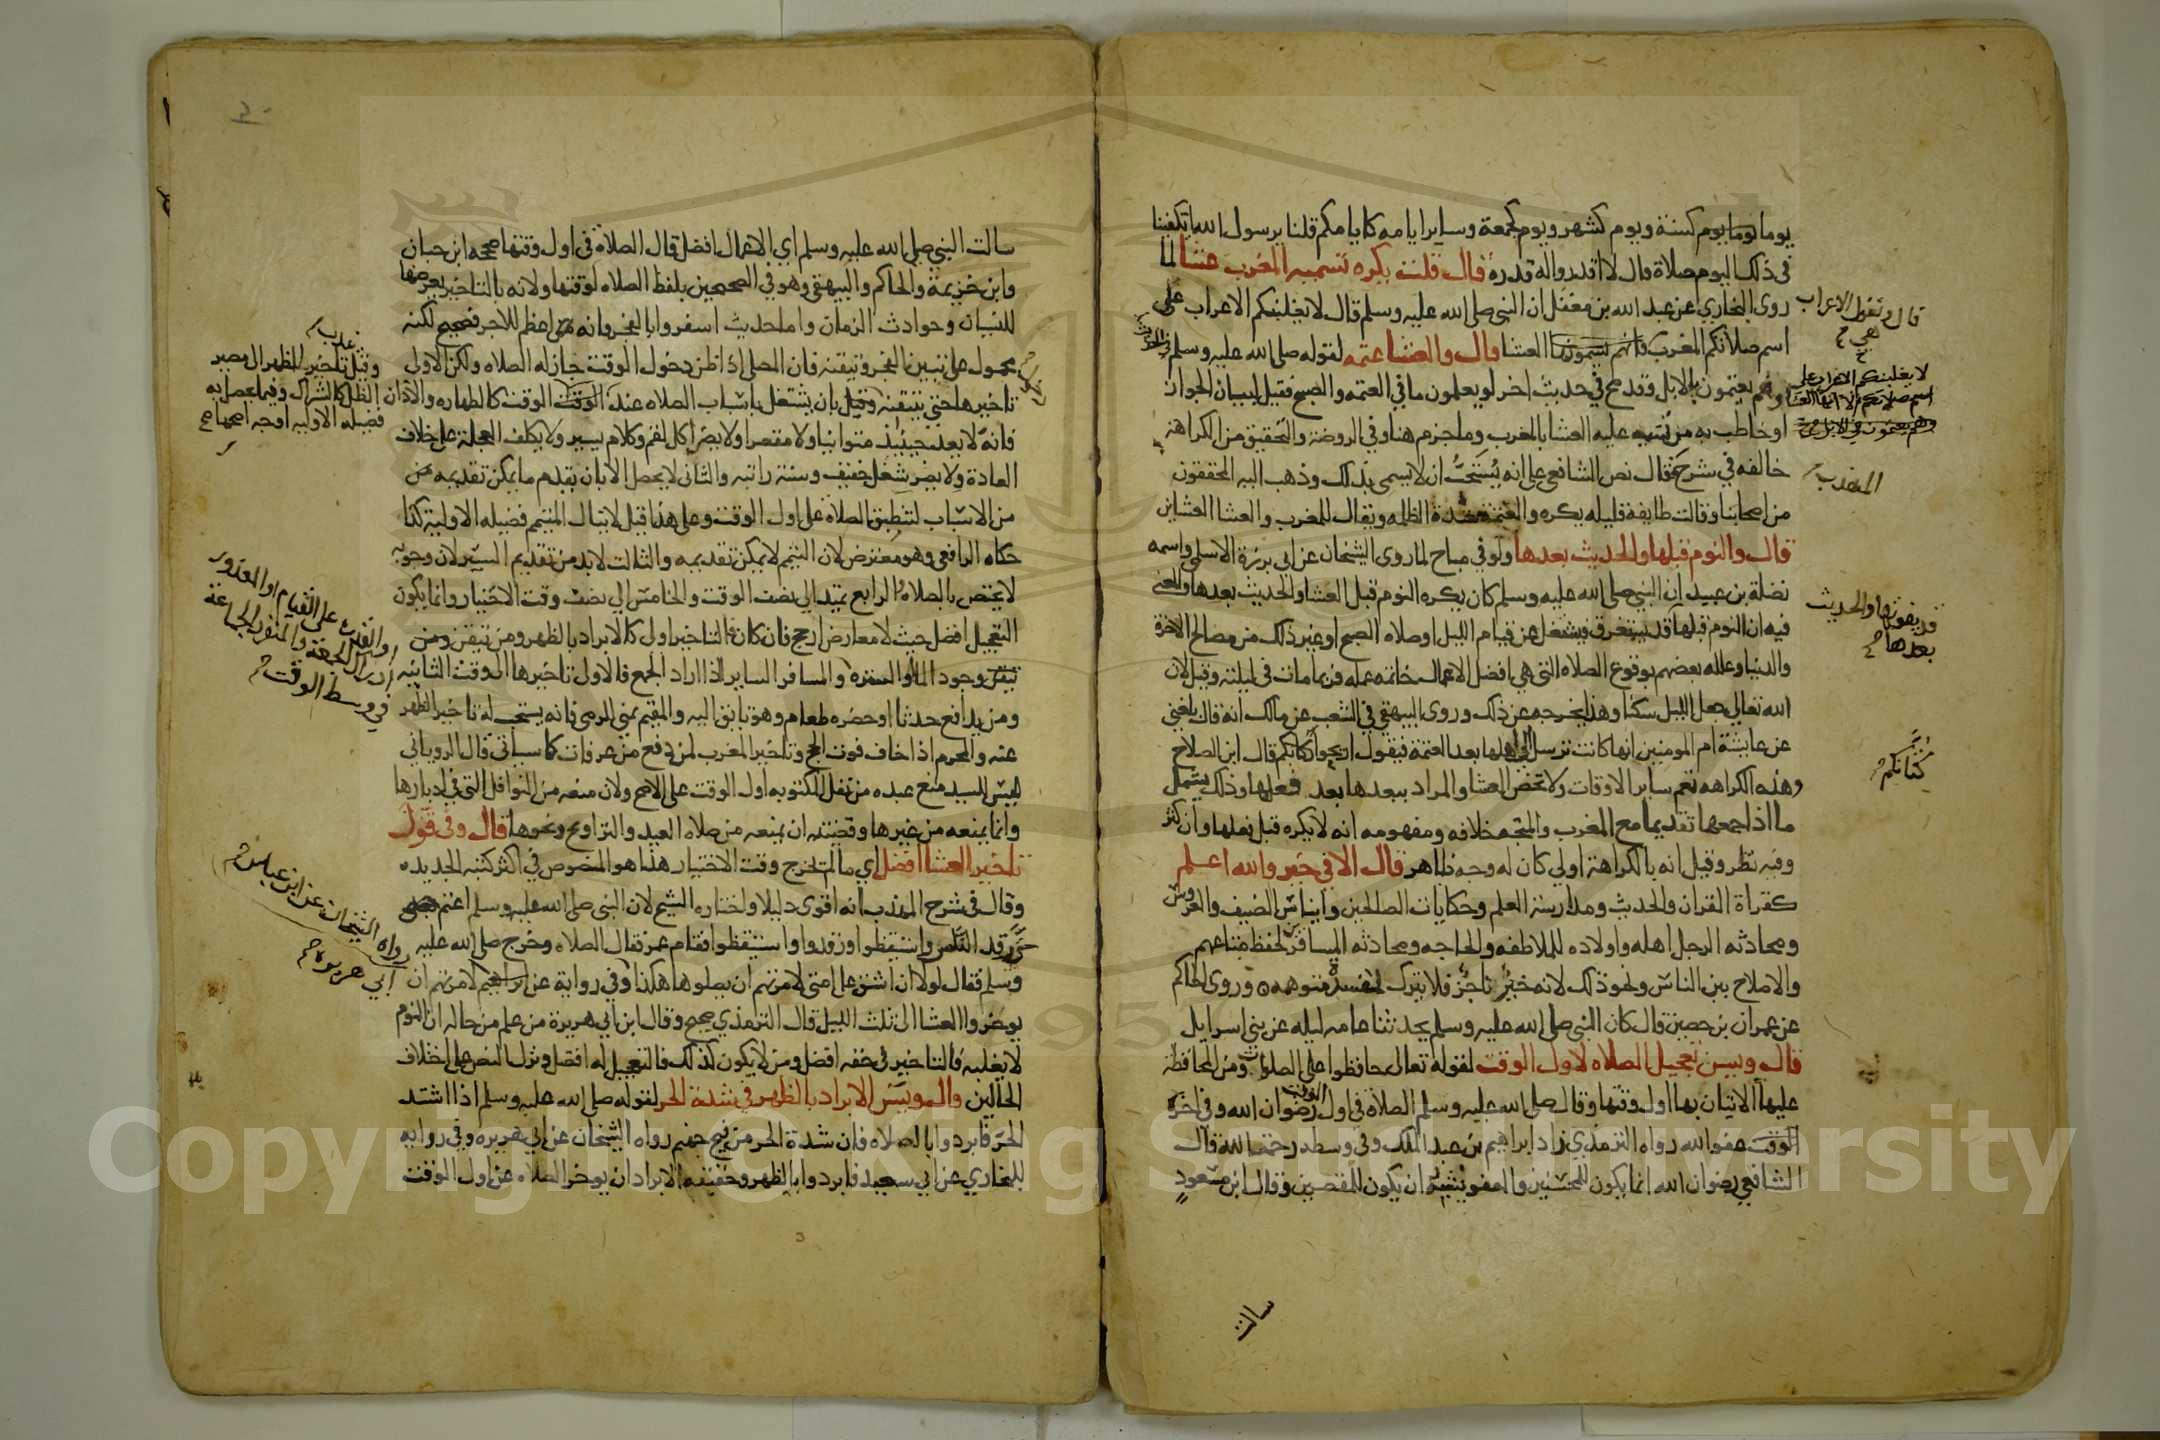 يوما يوم كسنة ويوم كشهر ويوم كجمعة وساير ايامه كايامكم قلنا يرسول الله ايكفينا
في ذلك اليوم صلاة قال لا اقدروا له قدره قال قلت يكره تسميه المغرب عشا لما
روى البخاري عن عبد الله بن مغفل ان النبي صلى الله عليه وسلم قال لا يغلبنكم الاعراب على
اسم صلاتكم المغرب قال والعشا عتمه لقوله صلى الله عليه وسلم
وهم يعتمون بالابل وقد صح في حديث اخر لو يعلمون ما في العتمه والصبح فقيل لبيان الجواز
او خاطب به من تشتبه عليه العشا بالمغرب وما جزم هنا وفي الروضة والتحقيق من الكراهة
خالفه في شرح فقال نص الشافعي على انه يستحب ان لا يسمى بذلك وذهب اليه المحققون
من اصحابنا وقالت طايفة قليله يكره والعتمه شدة الظلمه ويقال للمغرب والعشا العشاين
قال والنوم قبلها والحديث بعدها ولو في مباح لما روى الشيخان عن ابي برزة الاسلمي واسمه
نضلة بن عبيد ان النبي صلى الله عليه وسلم كان يكره النوم قبل العشا والحديث بعدها والمعنى
فيه ان النوم قبلها قد يستغرق فيشتغل عن قيام الليل او صلاه الصبح او غير ذلك من مصالح الاخرة
والدنيا وعلله بعضهم بوقوع الصلاه التي هي افضل الاعمال خاتمة عمله فربما مات في ليلته وقيل لان
الله تعالى جعل الليل سكنا وهذا يخرجه عن ذلك وروى البيهقي في الشعب عن مالك انه قال بلغني
عن عايشة ام المومنين انها كانت ترسل الى اهلها بعد العتمة فتقول اريحوا كتابكم قال ابن الصلاح
وهذه الكراهه تعم ساير الاوقات ولا تختص العشا والمراد ببعدها بعد فعلها وذلك يشمل
ما اذا جمعها تقديما مع المغرب والمتجه خلافه ومفهومه انه لا يكره قبل فعلها وان
وفيه نظر وقيل انه بالكراهة اولى كان له وجه ظاهر قال الا في خير والله اعلم
كقراة القران والحديث ومدارسة العلم وحكايات الصالحين وايناس الضيف والعروس
ومحادثه الرجل اهله واولاده للملاطفه والحاجه ومحادثه المسافرين لحفظ متاعهم
والاصلاح بين الناس ونحو ذلك لانه خير ناجز فلا يترك لمفسدة متوهمه وروى الحاكم
عن عمران بن حصين قال كان النبي صلى الله عليه وسلم يحدثنا عامه ليله عن بني اسرايل
قال ويسن تعجيل الصلاه لاول الوقت لقوله تعالى حافظوا على الصلوات ومن المحافظة
عليها الاتيان بها اول وقتها وقال صلى الله عليه وسلم الصلاة في اول الوقت رضوان الله وفي اخره
الوقت عفو الله رواه الترمذي زاد ابراهيم بن عبد الملك وفي وسطه رحمة الله قال
الشافعي رضوان الله انما يكون للمحسنين والعفو يشبه ان يكون للمقصرين وقال ابن مسعود
قال وتقول الاعراب
هي
لا يغلبنكم الاعراب على
المهذب
قد يفوتها والحديث
بعدها
كتابكم
سالت
سالت النبي صلى الله عليه وسلم اي الاعمال افضل قال الصلاة في اول وقتها صححه ابن حبان
وابن خزيمة والحاكم والبيهقي وهو في الصحيحين بلفظ الصلاه لوقتها ولانه بالتاخير يعرضها
للنسيان وحوادث الزمان واما حديث اسفروا بالفجر فانه اعظم للاجر فصحيح لكنه
محمول على تبين الفجر وتيقنه فان المصلي اذا ظن دخول الوقت جاز له الصلاه ولكن الاولى
تاخيرها حتى يتيقنه وقيل بان يشتغل باسباب الصلاه عند الوقت كالطهاره والاذان
فانه لا يعد حينئذ متوانيا ولا مقصرا ولا يضر اكل لقم وكلام يسير ولا يكلف العجلة على خلاف
العادة ولا يضر شغل خفيف وسنة راتبه والثاني لا يحصل الا بان يقدم ما يمكن تقديمه
من الاسباب لتنطبق الصلاة على اول الوقت وعلى هذا قيل لا ينال المتيمم فضيله الاولية كذا
حكاه الرافعي وهو معترض لان التيمم لا يمكن تقديمه والثالث لا بد من تقديم الستر لان وجوبه
لا يختص بالصلاه الرابع يمتد الى نصف الوقت والخامس الى نصف وقت الاختيار وانما يكون
التعجيل افضل حيث لا معارض ارجح فان كان فالتاخير اولى كالابراد بالظهر ومن تيقن ومن
تيقن وجود الما والسترة والمسافر الساير اذا اراد الجمع فالاولى تاخيرها الى وقت الثانيه
ومن يدافع حدثا او حضره طعام وهو تايق اليه والمقيم بمنى للرمي فانه يستحب له تاخير الظهر
عنه والمحرم اذا خاف فوت الحج وتاخير المغرب لمن دفع من عرفات كما سياتي قال الروياني
ليس للسيد منع عبده من نفل المكتوبه اول الوقت على الاصح ولان منعه من النوافل التي في ادبارها
وانما يمنعه من غيرها وقضيته ان يمنعه من صلاه العيد والتراويح ونحوها قال وفي قول
تاخير العشا افضل اي ما لم تخرج وقت الاختيار هذا هو المنصوص في اكثر كتبه الجديده
وقال في شرح المهذب انه اقوى دليلا واختاره الشيخ لان النبي صلى الله عليه وسلم اعتم
حتى رقد الناس واستيقظوا ورقدوا واستيقظوا فقام عمر فقال الصلاه وخرج صلى الله عليه
وسلم فقال لولا ان اشق على امتي لامرتهم ان يصلوها هكذا وفي رواية عن لامرتهم ان
يوخروا العشا الى ثلث الليل قال الترمذي صحيح وقال ابن ابي هريرة من علم من حاله ان النوم
لا يغلبه فالتاخير في حقه افضل ومن لا يكون كذلك فالتعجيل له افضل ونزل النص على اختلاف
الحالين قال ويسن الابراد بالظهر في شدة الحر لقوله صلى الله عليه وسلم اذا اشتد
الحر فابردوا بالصلاه فان شدة الحر من فيح جهنم رواه الشيخان عن ابي هريره وفي روايه
للبخاري عن ابي سعيد فابردوا بالظهر وحقيقه الابراد ان يوخر الصلاه عن اول الوقت
وقيل تاخير الظهر الى مصير
الظل كالشراك وفيما يحصل به
فضيله الاوليه اوجه اصحها
او القدره على القيام او المعذور
ان زال الجمعة والمنفرد الجماعة
في وسط الوقت
رواه الشيخان عن ابن عباس
ابي هريره
Copyright © King Saud University